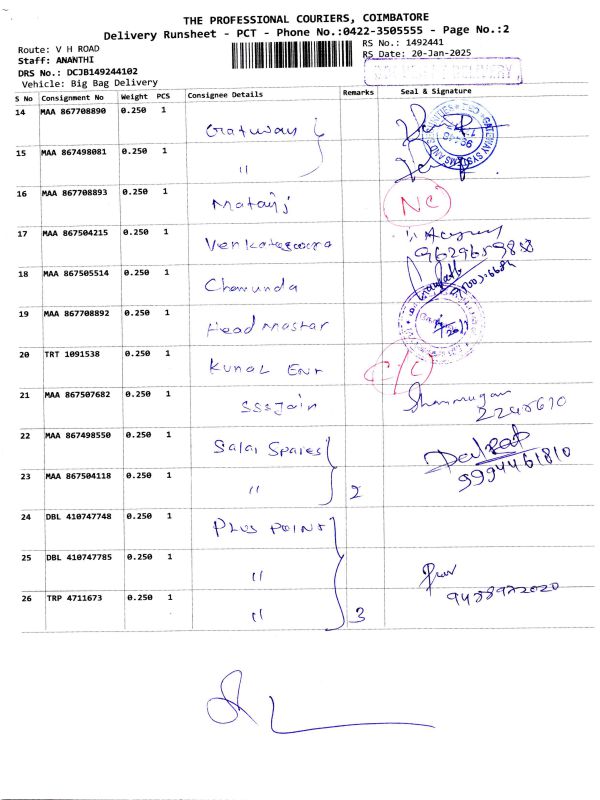 THE PROFESSIONAL COURIERS, COIMBATORE
Delivery Runsheet - PCT - Phone No.:0422-3505555 - Page No.:2
Route: V H ROAD
RS No.: 1492441
Staff: ANANTHI
RS Date: 20-Jan-2025
DRS No.: DCJB149244102
Vehicle: Big Bag Delivery
S No Consignment No Weight PCS Consignee Details Remarks Seal & Signature
14 MAA 867708890 0.250 1 Gatway
15 MAA 867498081 0.250 1 "
16 MAA 867708893 0.250 1 Mataji NC
17 MAA 867504215 0.250 1 Venkateswara
9629659838
18 MAA 867505514 0.250 1 Chamunda
19 MAA 867708892 0.250 1 Head Mastar
20 TRT 1091538 0.250 1 Kunal Ent C/C
21 MAA 867507682 0.250 1 SSSJain Shanmugan
2248610
22 MAA 867498550 0.250 1 Salai Spares
23 MAA 867504118 0.250 1 " 2 9994461810
24 DBL 410747748 0.250 1 Plus Point
25 DBL 410747785 0.250 1 "
26 TRP 4711673 0.250 1 " 3